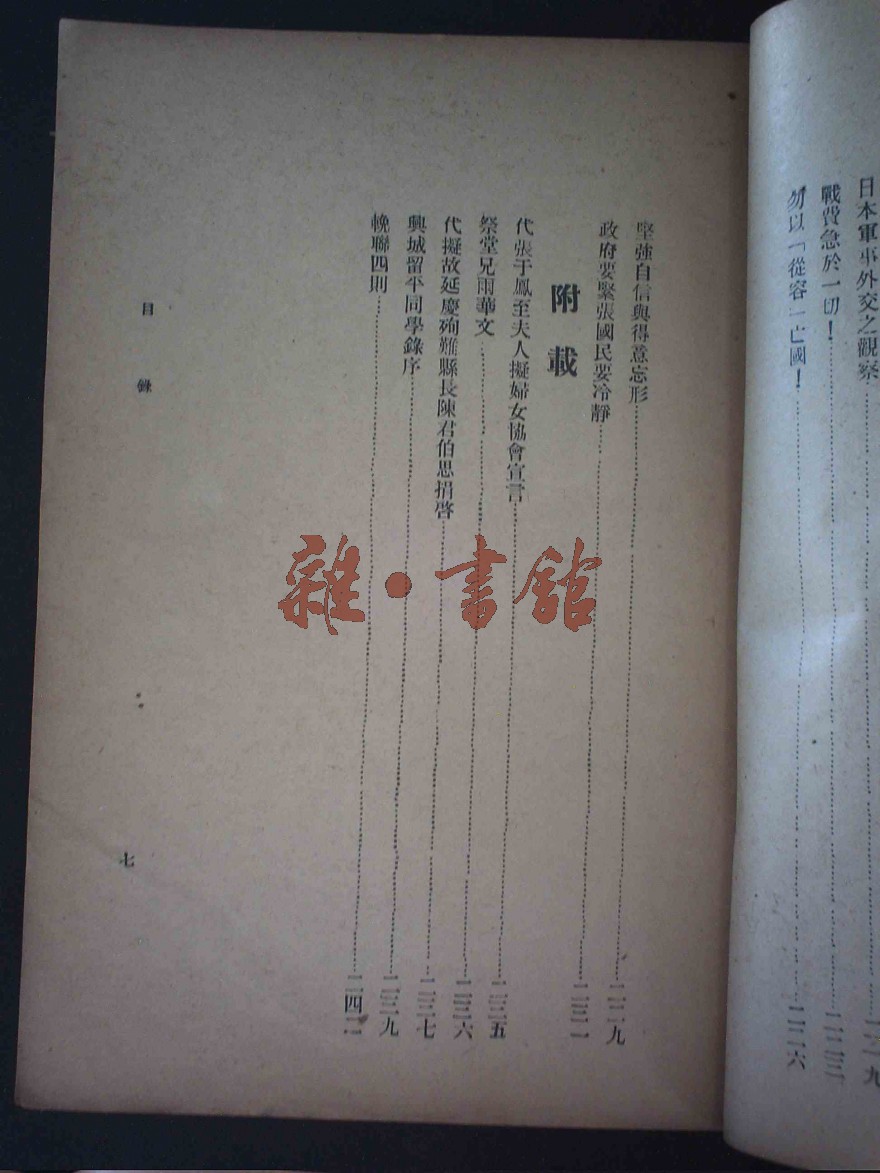 日本軍事外交之觀察……二一九
戰費急於一切！……二二三
勿以「從容」亡國！……二二六
堅強自信與得意忘形……二二九
政府要緊張國民要冷靜……二三二
附載
代張于鳳至夫人擬婦女協會宣言……二三五
祭堂兄雨華文……二三六
代擬故延慶殉難縣長陳君伯思捐啓……二三七
興城留平同學錄序……二三九
輓聯四則……二四二
目錄
七
雜·書館